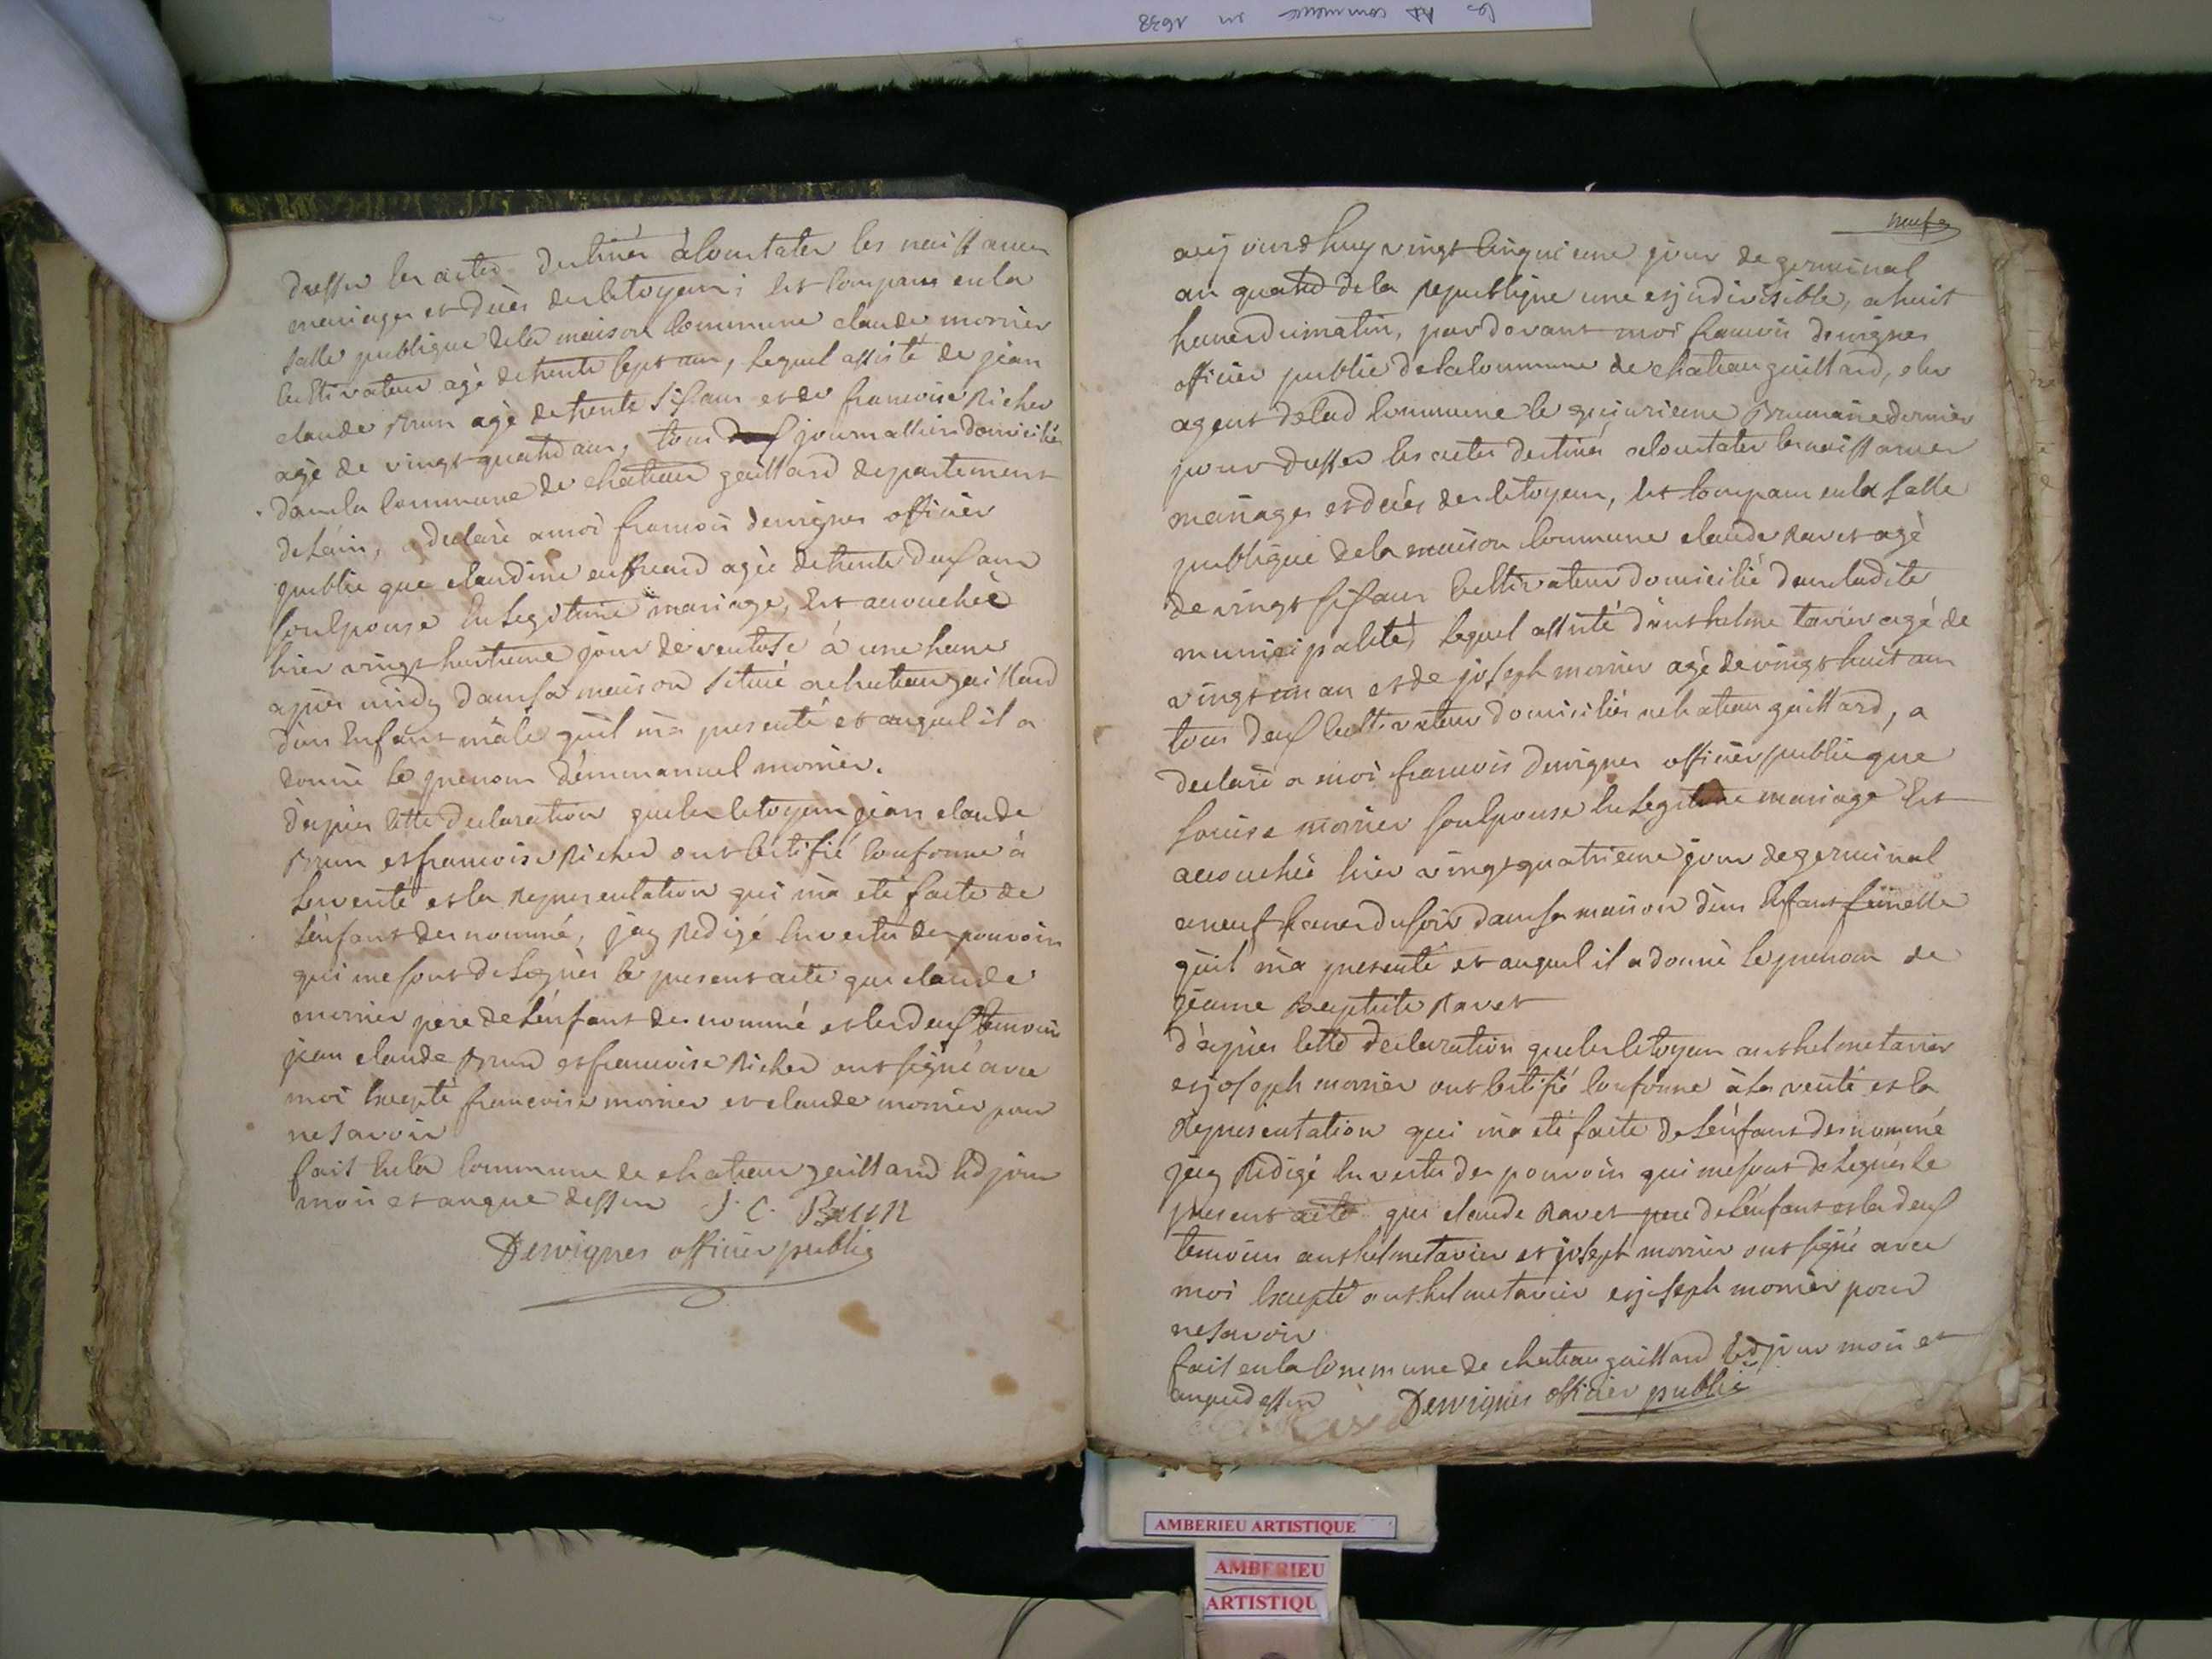 les AA commence en 1638
dresser les actes destinés a Constater les naissances
mariages et décès des Citoyens; Est Comparu en la
salle publique de la maison Commune claude morrier
Cultivateur agé de trente sept ans, lequel assisté de jean
claude Brun agé de trente six ans et de francoise Richer
agé de vingt quatre ans, tous deux journallier domiciliés
dans la Commune de chateau gaillard departement
de Lain, a declaré a moi francois Dervignes officier
public que claudine agée de trente deux ans
son Epouse En Legitime mariage, Est accouchée
hier vingt huitieme jour de ventose à une heure
apres midy dans sa maison Située a chateau gaillard
d'un Enfant mâle qu'il m'a presenté et auquel il a
donné le prenom d'emmanuel morrier.
d'apres Cette declaration que les Citoyens jean claude
Brun et francoise Richer ont Certifié Conforme à
la verité et la Representation qui m'a eté faite de
l'enfant denommé, j'ay Redigé En vertu des pouvoirs
qui me sont delegués le present acte que claude
morrier pere de L'enfant denommé et les deux temoins
jean claude Brun et francoise Richer ont signé avec
moi Excepté francoise morrier et claude morrier pour
ne savoir
fait En la Commune de chateau gaillard led jour
mois et anque dessus J. C. Brun
Dervignes officier public
neuf
aujourd huy vingt Cinquieme jour de germinal
an quatre de la Republique une et indivisible, a huit
heures du matin, par devant moi francois Dervignes
officier public de la Commune de chateau gaillard, elu
agent de lad Commune le quinzieme Brumaire dernier
pour dresser les actes destinés a Constater les naissances
mariages et décès des Citoyens, Est Comparu en la salle
publique de la maison Commune claude Ravet agé
de vingt six ans Cultivateur domicilié dans ladite
municipalité, lequel assisté d'anthelme tavier agé de
vingt un an et de joseph morrier agé de vingt huit ans
tous deux Cultivateur domiciliés a chateau gaillard, a
declaré a moi francois Dervignes officier public que
Louise morrier son Epouse En Legitime mariage Est
accouchée hier vingt quatrieme jour de germinal
a neuf heures du soir dans sa maison d'un Enfant femelle
qu'il m'a presenté et auquel il a donné le prenom de
jeanne Baptiste Ravet
d'apres Cette declaration que les Citoyens anthelme tavier
et joseph morrier ont Certifié Conforme à la verité et la
Representation qui m'a eté faite de L'enfant denommé
j'ay Redigé En vertu des pouvoirs qui me sont delegués le
present acte que claude Ravet pere de L'enfant et les deux
temoins anthelme tavier et joseph morrier ont signé avec
moi Excepté anthelme tavier et joseph morrier pour
ne savoir
fait en la Commune de chateau gaillard led jour mois et
anque dessus Dervignes officier public
Ravet
AMBERIEU ARTISTIQUE
AMBERIEU
ARTISTIQU